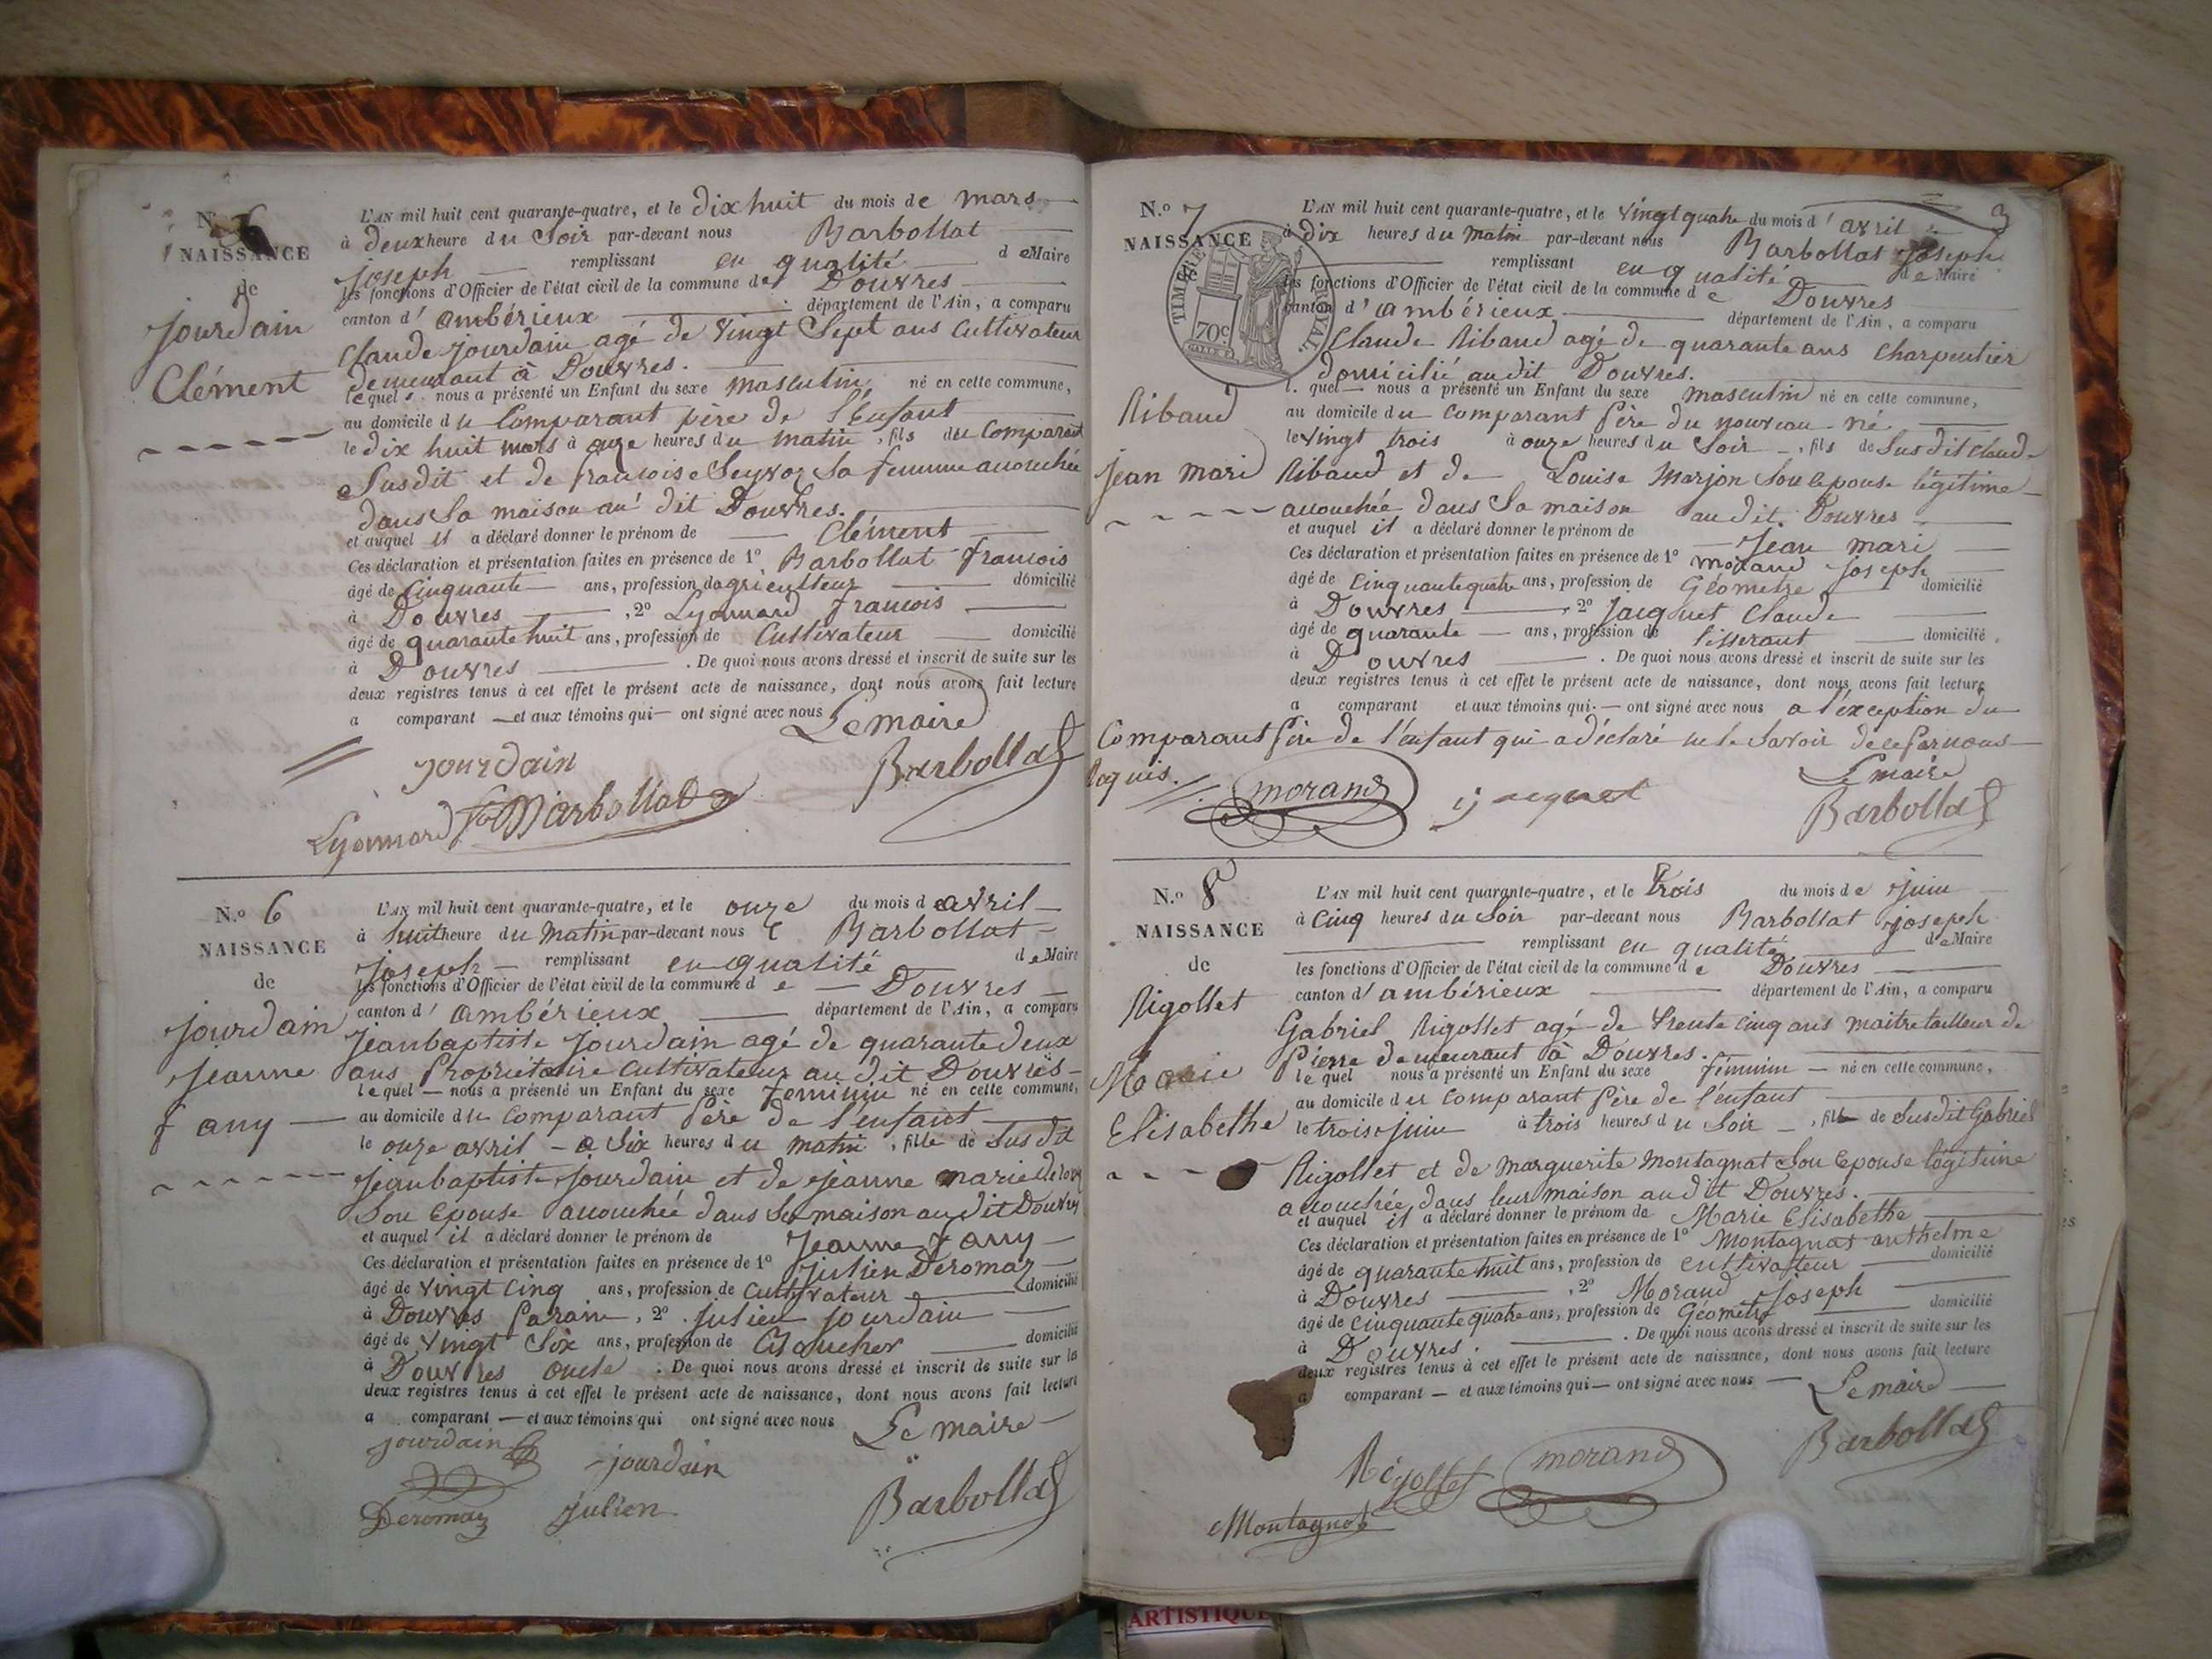 N.º 5
NAISSANCE
de
Jourdain
Clément
L'AN mil huit cent quarante-quatre, et le dix huit du mois de mars
à deux heure du Soir par-devant nous Barbollat
joseph remplissant en qualité de Maire
les fonctions d'Officier de l'état civil de la commune de Douvres
canton d' ambérieux département de l'Ain, a comparu
Claude Jourdain agé de vingt Sept ans Cultivateur
demeurant à Douvres.
lequel nous a présenté un Enfant du sexe masculin, né en cette commune,
au domicile du Comparant père de l'enfant
le dix huit mars à onze heures du matin, fils du Comparant
Susdit et de francoise Seyvoz Sa femme accouchée
dans Sa maison au dit Douvres.
et auquel il a déclaré donner le prénom de Clément
Ces déclaration et présentation faites en présence de 1º Barbollat francois
âgé de Cinquante ans, profession d'agriculteur domicilié
à Douvres, 2º Lyonnard francois
âgé de quarante huit ans, profession de Cultivateur domicilié
à Douvres. De quoi nous avons dressé et inscrit de suite sur les
deux registres tenus à cet effet le présent acte de naissance, dont nous avons fait lecture
a comparant et aux témoins qui ont signé avec nous
Le maire
jourdain
Barbollat
Lyonnard fois Barbollat
N.º 6
NAISSANCE
de
Jourdain
Jeanne
fany
L'AN mil huit cent quarante-quatre, et le onze du mois d avril
à huit heure du matin par-devant nous Barbollat
joseph remplissant en qualité de Maire
les fonctions d'Officier de l'état civil de la commune de Douvres
canton d' ambérieux département de l'Ain, a comparu
Jeanbaptiste Jourdain agé de quarante deux
ans Propriétaire Cultivateur au dit Douvres
lequel nous a présenté un Enfant du sexe féminin né en cette commune,
au domicile du comparant Père de l'enfant
le onze avril à Six heures du matin, fille de Susdit
Jeanbaptiste Jourdain et de Jeanne marie
Son Epouse accouchée dans Sa maison au dit Douvres
et auquel il a déclaré donner le prénom de Jeanne fany
Ces déclaration et présentation faites en présence de 1º Julien Deromaz
âgé de vingt Cinq ans, profession de Cultivateur domicilié
à Douvres Parain, 2º Julien Jourdain
âgé de vingt Six ans, profession de domicilié
à Douvres oncle. De quoi nous avons dressé et inscrit de suite sur les
deux registres tenus à cet effet le présent acte de naissance, dont nous avons fait lecture
a comparant et aux témoins qui ont signé avec nous Le maire
jourdain
jourdain
Deromaz julien
Barbollat
3
N.º 7
NAISSANCE
TIMBRE ROYAL.
70c.
Ribaud
jean mari
L'AN mil huit cent quarante-quatre, et le vingt quatre du mois d' avril
à dix heures du matin par-devant nous Barbollat joseph
remplissant en qualité de Maire
les fonctions d'Officier de l'état civil de la commune de Douvres
canton d' ambérieux département de l'Ain, a comparu
Claude Ribaud agé de quarante ans Charpentier
domicilié au dit Douvres.
l. quel nous a présenté un Enfant du sexe masculin né en cette commune,
au domicile du comparant Père du nouveau né
le vingt trois à onze heures du Soir, fils de Susdit Claude
Ribaud et de Louise Marjon Son Epouse légitime
accouchée dans Sa maison au dit Douvres
et auquel il a déclaré donner le prénom de Jean mari
Ces déclaration et présentation faites en présence de 1º morand joseph
âgé de Cinquante quatre ans, profession de Géometre domicilié
à Douvres, 2º Jacquet Claude
âgé de quarante ans, profession de tisserant domicilié
à Douvres. De quoi nous avons dressé et inscrit de suite sur les
deux registres tenus à cet effet le présent acte de naissance, dont nous avons fait lecture
a comparant et aux témoins qui ont signé avec nous a l'exception du
Comparant Père de l'enfant qui a déclaré ne le Savoir de ce par nous
Requis.
morand
jacquet
Le maire
Barbollat
N.º 8
NAISSANCE
de
Rigollet
Marie
Elisabethe
L'AN mil huit cent quarante-quatre, et le trois du mois de juin
à Cinq heures du Soir par-devant nous Barbollat joseph
remplissant en qualité de Maire
les fonctions d'Officier de l'état civil de la commune de Douvres
canton d' ambérieux département de l'Ain, a comparu
Gabriel Rigollet agé de trente cinq ans maitre tailleur de
Pierre demeurant à Douvres.
lequel nous a présenté un Enfant du sexe féminin né en cette commune,
au domicile du comparant Père de l'enfant
le trois juin à trois heures du Soir, fille de Susdit Gabriel
Rigollet et de Marguerite Montagnat Son Epouse légitime
accouchée dans leur maison au dit Douvres.
et auquel il a déclaré donner le prénom de Marie Elisabethe
Ces déclaration et présentation faites en présence de 1º Montagnat anthelme
âgé de quarante huit ans, profession de cultivateur domicilié
à Douvres, 2º Morand Joseph
âgé de cinquante quatre ans, profession de Géometre domicilié
à Douvres. De quoi nous avons dressé et inscrit de suite sur les
deux registres tenus à cet effet le présent acte de naissance, dont nous avons fait lecture
a comparant et aux témoins qui ont signé avec nous Le maire
Rigollet
morand
Barbollat
Montagnat
ARTISTIQUE